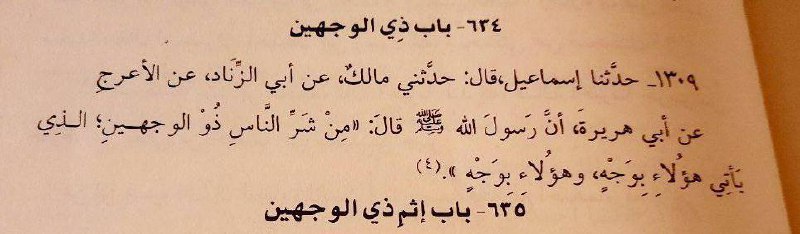 ٦٣٤- باب ذِي الوجهين
١٣٠٩- حدَّثنا إسماعيل،قال: حدَّثني مالكٌ، عن أبي الزِّنَاد، عن الأعرجِ
عن أبي هريرةَ، أنَّ رَسولَ الله ﷺ قالَ: «مِنْ شَرِّ النَّاسِ ذُوْ الوجهـينِ؛ الـذِي
يَأتِي هؤُلَاءِ بِوَجْهٍ، وهؤُلاءِ بِوَجْهٍ».(٤)
٦٣٥- باب إثمِ ذي الوجهين